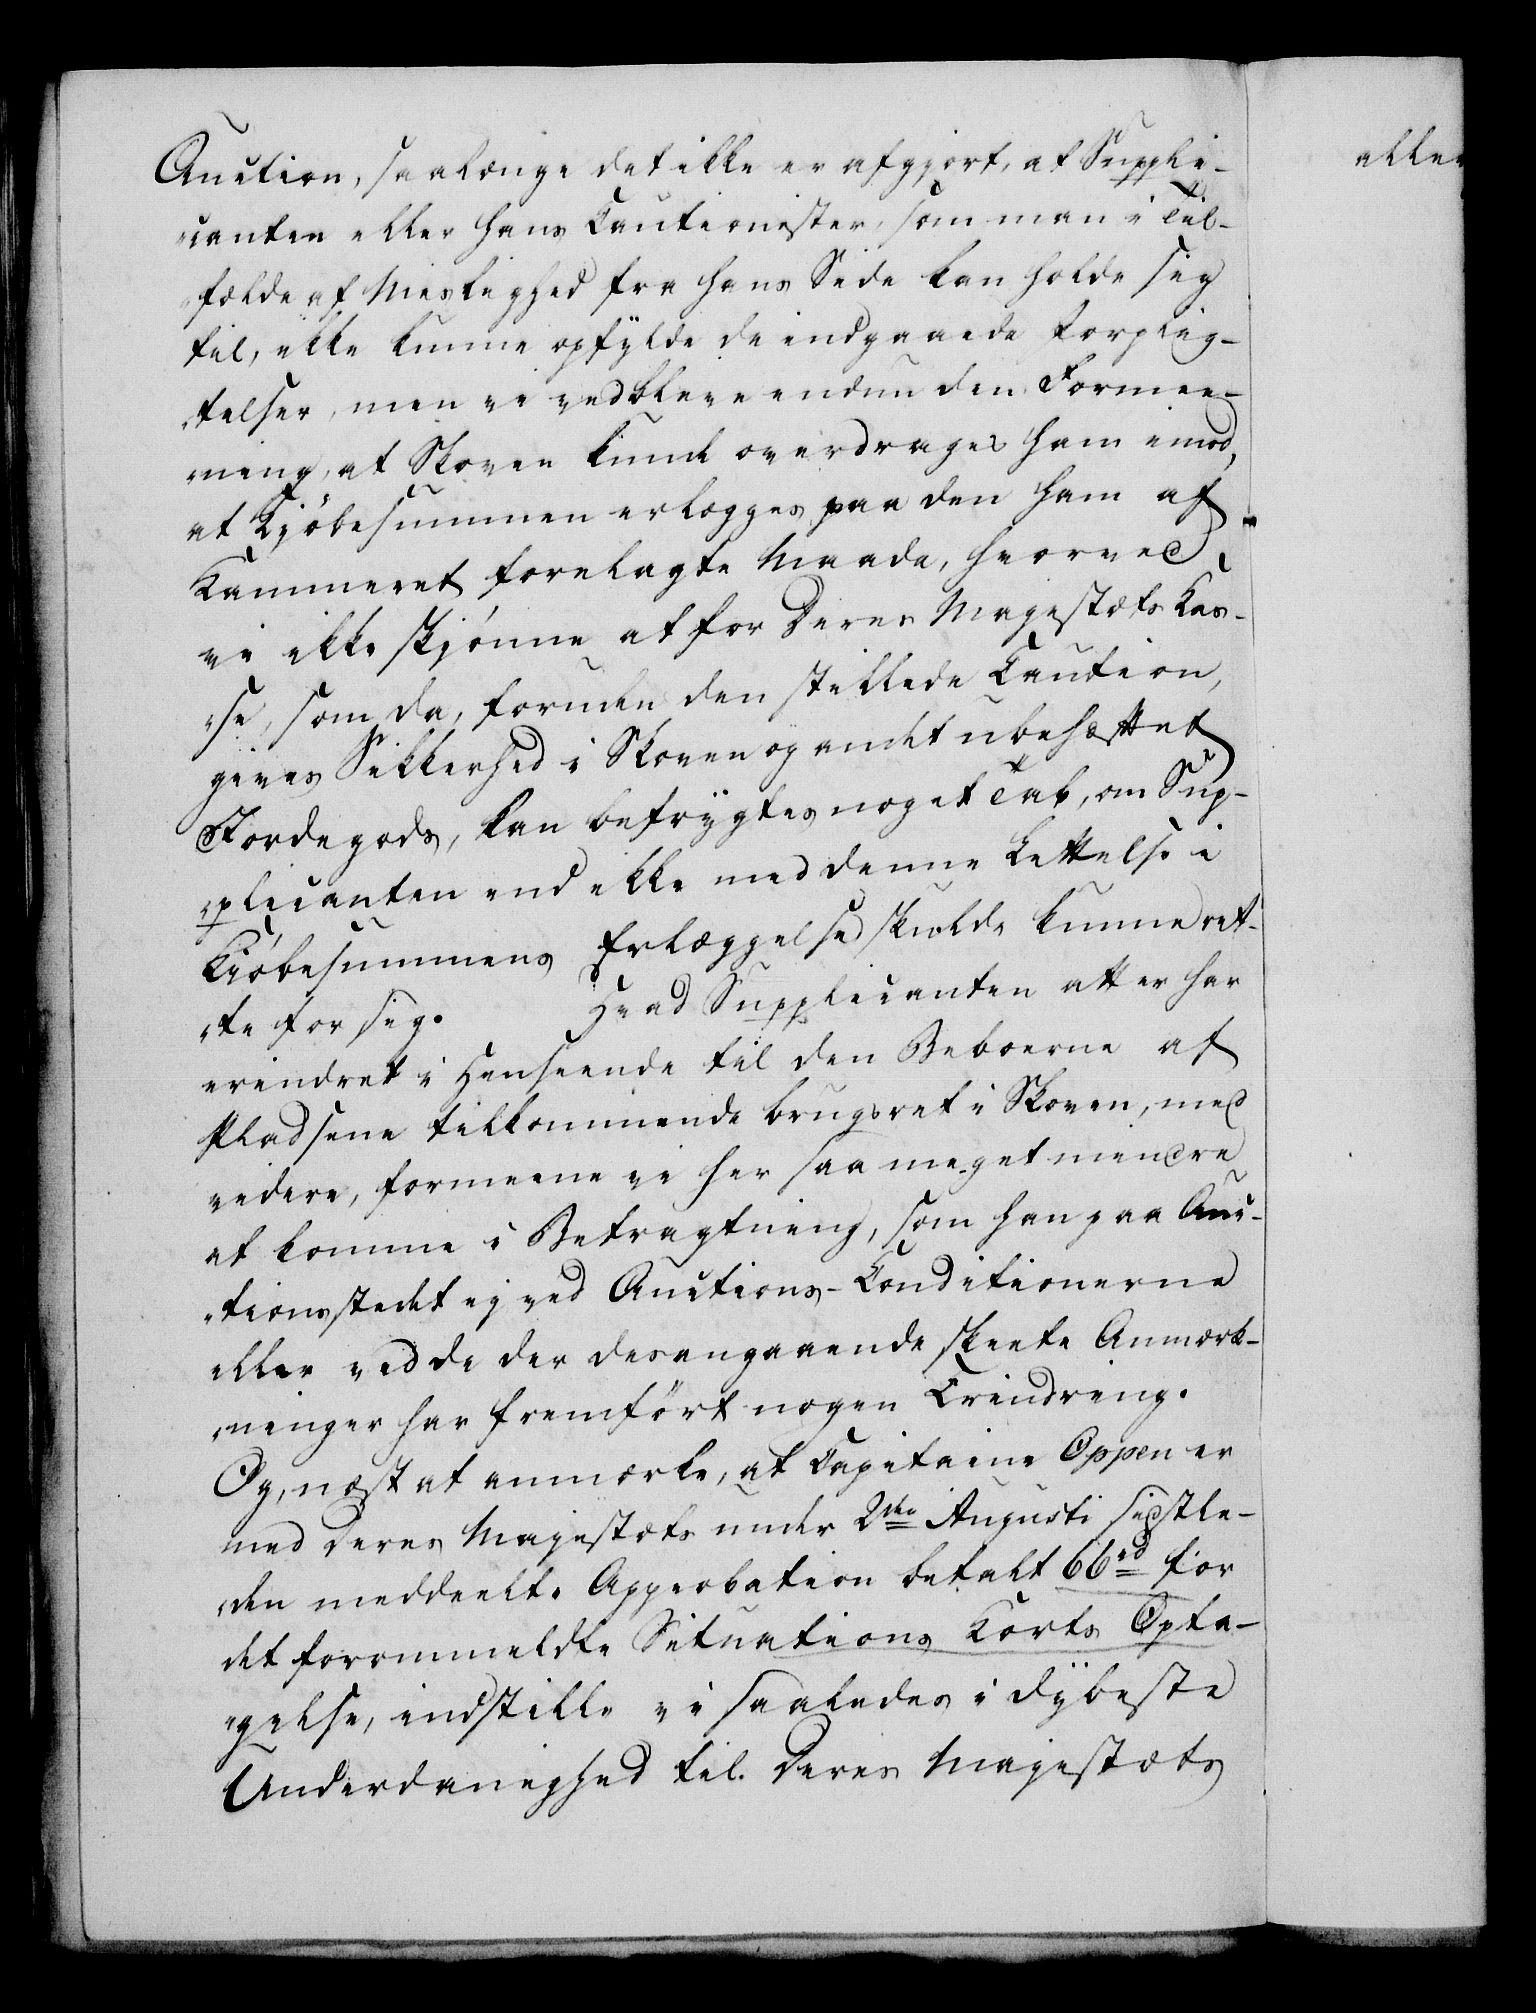 Auction, saalænge det ikke er afgjort, at Suppli-
„canten eller hans Cautionister, som man i Til-
„fælde af Mislighed fra hans Side kan holde sig
til, ikke kunne opfylde de indgaaede Forplig-
„telser, men vi vedbleve endnu den Formee-
„ning, at Skoven kunde overdrages ham imod,
at Kjöbesummen erlægges paa den ham af
Kammeret forelagte Maade, hvorved
vi ikke skjönne at for Deres Majestæts Kas-
„se, som da, foruden den stillede Caution,
gives Sikkerhed i Skoven og andet ubehæftet
Jordegods, kan befrygtes noget Tab, om Sup-
„plicanten end ikke med denne Lettelse i
Kjöbesummens Erlæggelse skulde kunne ret-
„te for sig. Hvad Supplicanten atter har
erindret i Henseende til den Beboerne af
Pladsene tilkommende brugsret i Skoven, med
videre, formeene vi her saa meget mindre
at komme i Betragtning, som han paa Auc-
„tionsstedet ej ved Auctions-Conditionerne
eller ved de der desangaaende skeete Anmærk-
„ninger har fremfört nogen Erindring.
Og, næst at anmærke, at Capitaine Oppen er
med Deres Majestæts under 2den Augusti sidstle-
„den meddeelte Approbation betalt 66rd for
det forommeldte Situations Korts Opta-
„gelse, indstille vi saaledes i dÿbeste
Underdanighed til Deres Majestæts
aller